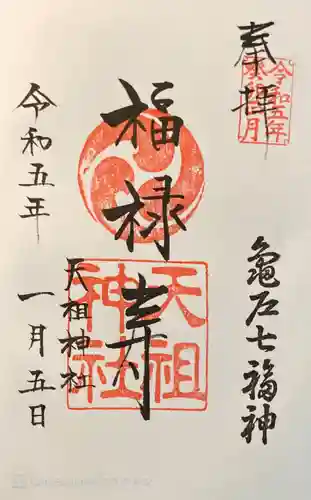 奉拝
令和五年
癸卯正月
亀戸七福神
福禄寿
天祖神社
天祖神社
令和五年
一月五日